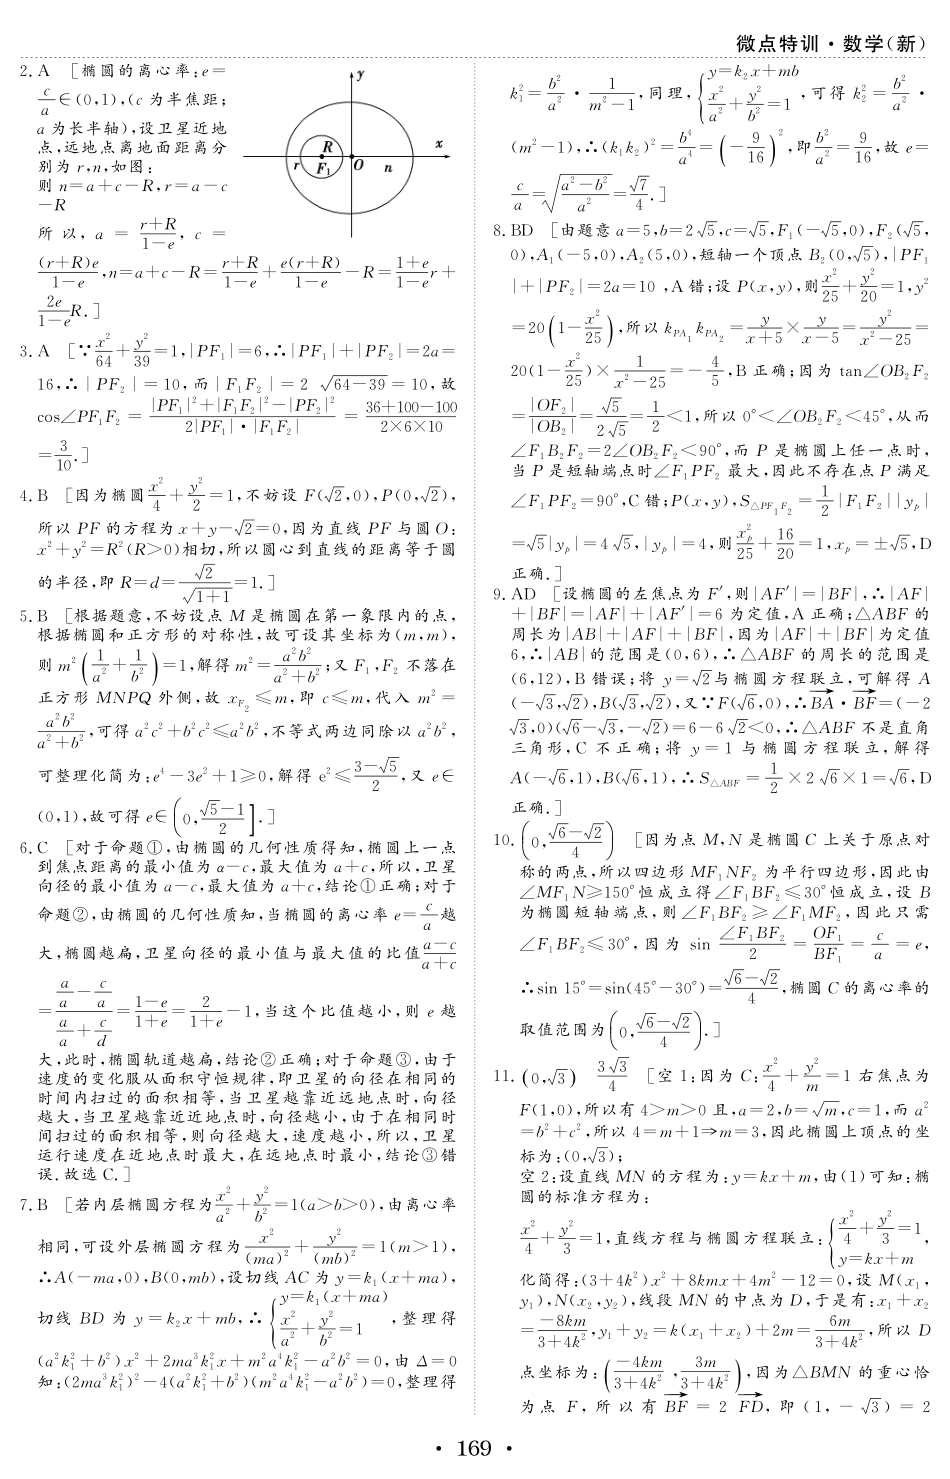 微点特训·数学(新)
2. A [椭圆的离心率:e=
c/a∈(0,1),(c 为半焦距;
a 为长半轴),设卫星近地
点,远地点离地面距离分
别为 r,n,如图:
则 n=a+c-R,r=a-c
-R
y
x
R
r
F₁
O
n
所以, a = (r+R)/(1-e), c =
(r+R)e/(1-e),n=a+c-R=(r+R)/(1-e)+e(r+R)/(1-e)-R=(1+e)/(1-e)r+
2e/(1-e)R.]
3. A [∵x²/64+y²/39=1,|PF₁|=6,∴|PF₁|+|PF₂|=2a=
16,∴|PF₂|=10,而|F₁F₂|=2√(64-39)=10,故
cos∠PF₁F₂=(|PF₁|²+|F₁F₂|²-|PF₂|²)/(2|PF₁|·|F₁F₂|)=(36+100-100)/(2×6×10)
=3/10.]
4. B [因为椭圆x²/4+y²/2=1,不妨设 F(√2,0),P(0,√2),
所以 PF 的方程为 x+y-√2=0,因为直线 PF 与圆 O:
x²+y²=R²(R>0)相切,所以圆心到直线的距离等于圆
的半径,即 R=d=√2/√(1+1)=1.]
5. B [根据题意,不妨设点 M 是椭圆在第一象限内的点,
根据椭圆和正方形的对称性,故可设其坐标为(m,m),
则 m²(1/a²+1/b²)=1,解得 m²=a²b²/(a²+b²);又 F₁,F₂ 不落在
正方形 MNPQ 外侧,故 x_F₂≤m,即 c≤m,代入 m²=
a²b²/(a²+b²),可得 a²c²+b²c²≤a²b²,不等式两边同除以 a²b²,
可整理化简为:e⁴-3e²+1≥0,解得 e²≤(3-√5)/2,又 e∈
(0,1),故可得 e∈(0,(√5-1)/2].]
6. C [对于命题①,由椭圆的几何性质得知,椭圆上一点
到焦点距离的最小值为 α-c,最大值为 a+c,所以,卫星
向径的最小值为 a-c,最大值为 a+c,结论①正确;对于
命题②,由椭圆的几何性质知,当椭圆的离心率 e=c/a越
大,椭圆越扁,卫星向径的最小值与最大值的比值(a-c)/(a+c)
=(a/a-c/a)/(a/a+c/d)=(1-e)/(1+e)=2/(1+e)-1,当这个比值越小,则 e 越
大,此时,椭圆轨道越扁,结论②正确;对于命题③,由于
速度的变化服从面积守恒规律,即卫星的向径在相同的
时间内扫过的面积相等,当卫星越靠近远地点时,向径
越大,当卫星越靠近近地点时,向径越小,由于在相同时
间扫过的面积相等,则向径越大,速度越小,所以,卫星
运行速度在近地点时最大,在远地点时最小,结论③错
误.故选 C.]
7. B [若内层椭圆方程为x²/a²+y²/b²=1(a>b>0),由离心率
相同,可设外层椭圆方程为x²/(ma)²+y²/(mb)²=1(m>1),
∴A(-ma,0),B(0,mb),设切线 AC 为 y=k₁(x+ma),
切线 BD 为 y=k₂x+mb,∴{y=k₁(x+ma) x²/a²+y²/b²=1,整理得
(a²k₁²+b²)x²+2ma³k₁²x+m²a⁴k₁²-a²b²=0,由 Δ=0
知:(2ma³k₁²)²-4(a²k₁²+b²)(m²a⁴k₁²-a²b²)=0,整理得
k₁²=b²/a²·1/(m²-1),同理,{y=k₂x+mb x²/a²+y²/b²=1,可得 k₂²=b²/a²·
(m²-1),∴(k₁k₂)²=b⁴/a⁴=(-9/16)²,即b²/a²=9/16,故 e=
c/a=√((a²-b²)/a²)=√7/4.]
8. BD [由题意 a=5,b=2√5,c=√5,F₁(-√5,0),F₂(√5,
0),A₁(-5,0),A₂(5,0),短轴一个顶点 B₂(0,√5),|PF₁
|+|PF₂|=2a=10,A 错;设 P(x,y),则x²/25+y²/20=1,y²
=20(1-x²/25),所以 k_PA₁ k_PA₂=y/(x+5)×y/(x-5)=y²/(x²-25)=
20(1-x²/25)×1/(x²-25)=-4/5,B 正确;因为 tan∠OB₂F₂
=|OF₂|/|OB₂|=√5/2√5=1/2<1,所以 0°<∠OB₂F₂<45°,从而
∠F₁B₂F₂=2∠OB₂F₂<90°,而 P 是椭圆上任一点时,
当 P 是短轴端点时∠F₁PF₂ 最大,因此不存在点 P 满足
∠F₁PF₂=90°,C 错;P(x,y),S△PF₁F₂=1/2|F₁F₂||y_p|
=√5|y_p|=4√5,|y_p|=4,则x_p²/25+16/20=1,x_p=±√5,D
正确.]
9. AD [设椭圆的左焦点为 F′,则|AF′|=|BF|,∴|AF|
+|BF|=|AF|+|AF′|=6 为定值,A 正确;△ABF 的
周长为|AB|+|AF|+|BF|,因为|AF|+|BF|为定值
6,∴|AB|的范围是(0,6),∴△ABF 的周长的范围是
(6,12),B 错误;将 y=√2与椭圆方程联立,可解得 A
(-√3,√2),B(√3,√2),又∵F(√6,0),∴BA→·BF→=(-2
√3,0)(√6-√3,-√2)=6-6√2<0,∴△ABF 不是直角
三角形,C 不正确;将 y=1 与椭圆方程联立,解得
A(-√6,1),B(√6,1),∴S△ABF=1/2×2√6×1=√6,D
正确.]
10. (0,(√6-√2)/4) [因为点 M,N 是椭圆 C 上关于原点对
称的两点,所以四边形 MF₁NF₂ 为平行四边形,因此由
∠MF₁N≥150°恒成立得∠F₁BF₂≤30°恒成立,设 B
为椭圆短轴端点,则∠F₁BF₂≥∠F₁MF₂,因此只需
∠F₁BF₂≤30°,因为 sin ∠F₁BF₂/2=OF₁/BF₁=c/a=e,
∴sin 15°=sin(45°-30°)=(√6-√2)/4,椭圆 C 的离心率的
取值范围为(0,(√6-√2)/4).]
11. (0,√3) 3√3/4 [空 1:因为 C:x²/4+y²/m=1 右焦点为
F(1,0),所以有 4>m>0 且,a=2,b=√m,c=1,而 a²
=b²+c²,所以 4=m+1⇒m=3,因此椭圆上顶点的坐
标为:(0,√3);
空 2:设直线 MN 的方程为:y=kx+m,由(1)可知:椭
圆的标准方程为:
x²/4+y²/3=1,直线方程与椭圆方程联立:{x²/4+y²/3=1 y=kx+m,
化简得:(3+4k²)x²+8kmx+4m²-12=0,设 M(x₁,
y₁),N(x₂,y₂),线段 MN 的中点为 D,于是有:x₁+x₂
=-8km/(3+4k²),y₁+y₂=k(x₁+x₂)+2m=6m/(3+4k²),所以 D
点坐标为:(-4km/(3+4k²),3m/(3+4k²)),因为△BMN 的重心恰
为点 F,所以有 BF→=2 FD→,即(1,-√3)=2
· 169 ·